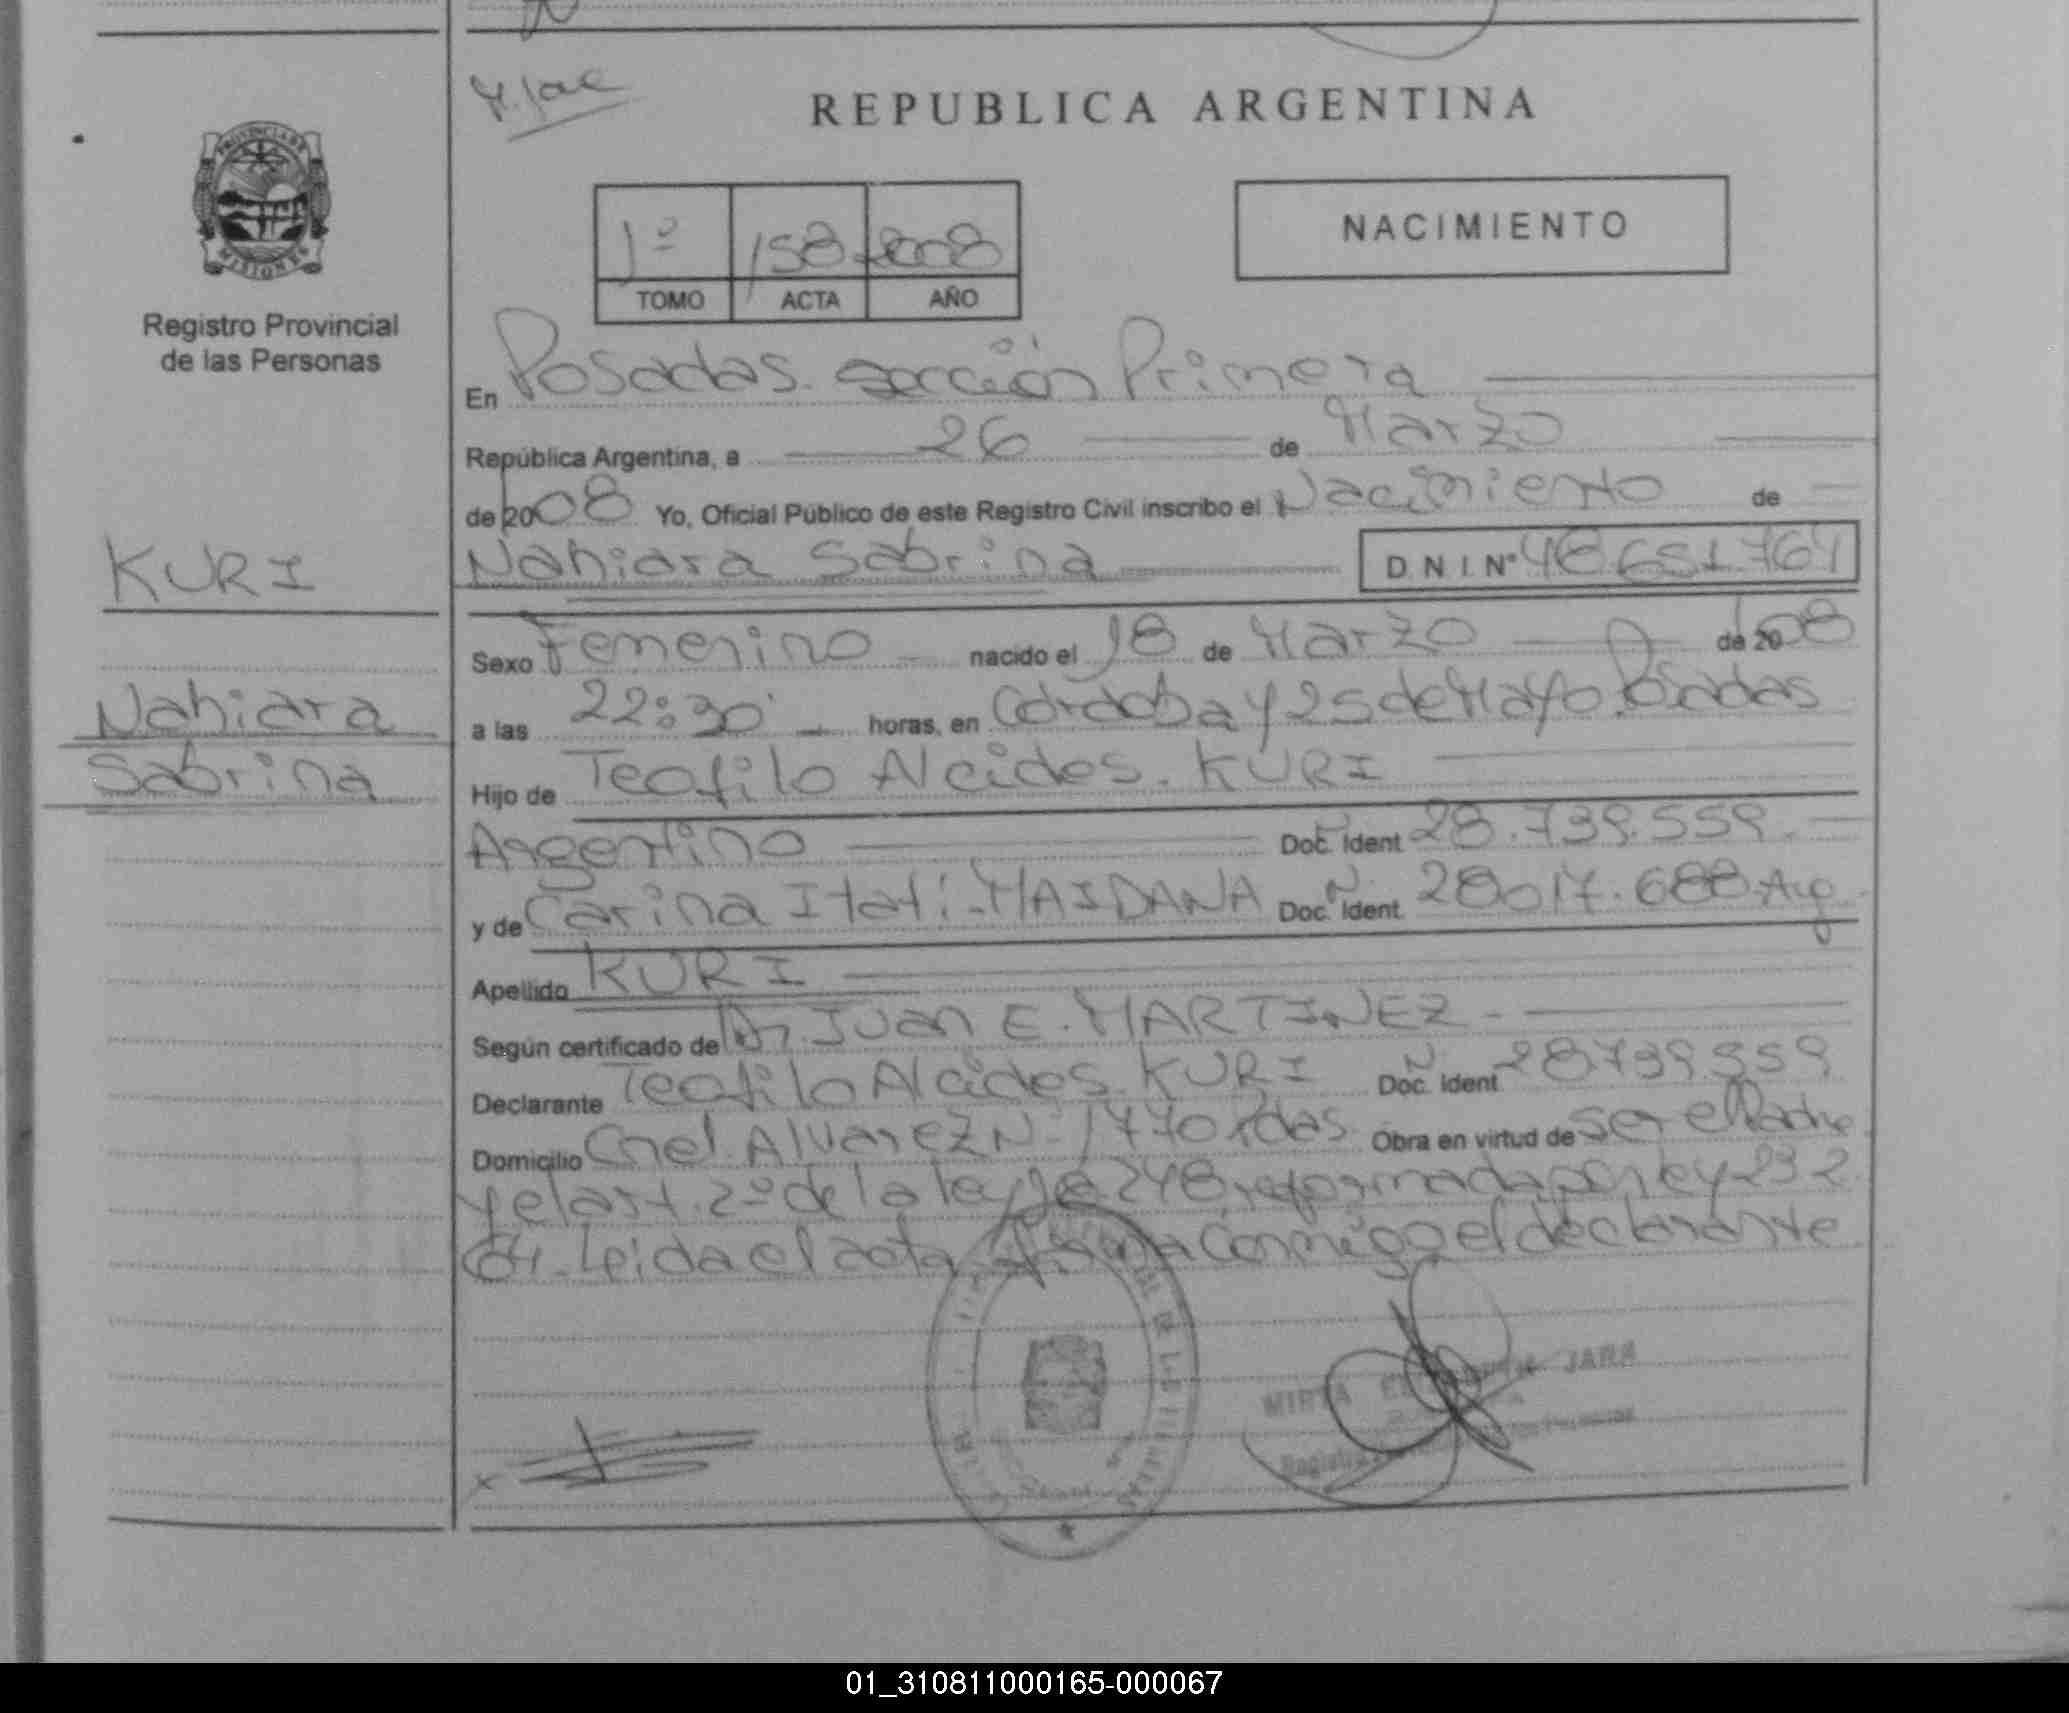 M. Jac
REPUBLICA ARGENTINA
PROVINCIA DE
MISIONES
1º 158 2008
TOMO ACTA AÑO
NACIMIENTO
Registro Provincial
de las Personas
En Posadas. sección Primera
República Argentina, a 26 de Marzo
de 2008 Yo, Oficial Público de este Registro Civil inscribo el Nacimiento de
KURI
Nahiara Sabrina D.N.I. Nº 48651764
Sexo Femenino nacido el 18 de Marzo de 2008
Nahiara
Sabrina
a las 22:30 horas, en Córdoba y 25 de Mayo. Posadas
Hijo de Teofilo Alcides. KURI
Argentino Doc. Ident 28.739.559.
y de Carina Itati. MAIDANA Doc. Ident. 28017.688 Arg
Apellido KURI
Según certificado de Dr. Juan E. MARTINEZ
Declarante Teofilo Alcides. KURI Doc. Ident 28739.559
Domicilio Cnel. Alvarez Nº 1770 Pdas. Obra en virtud de ser el Padre
y el art. 2º de la ley 18.248, reformada por ley 232
64. Leida el acta, firma conmigo el declarante
x
MIRTA JARA
01_310811000165-000067